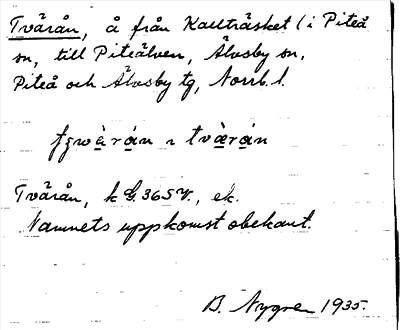 Tvärån, å från Kallträsket (i Piteå
sn, till Piteälven, Älvsby sn,
Piteå och Älvsby tg, Norrb. l.
tvärån
Tvärån, k G. 365 V., ek.
Namnets uppkomst obekant.
B. Nygren 1935.